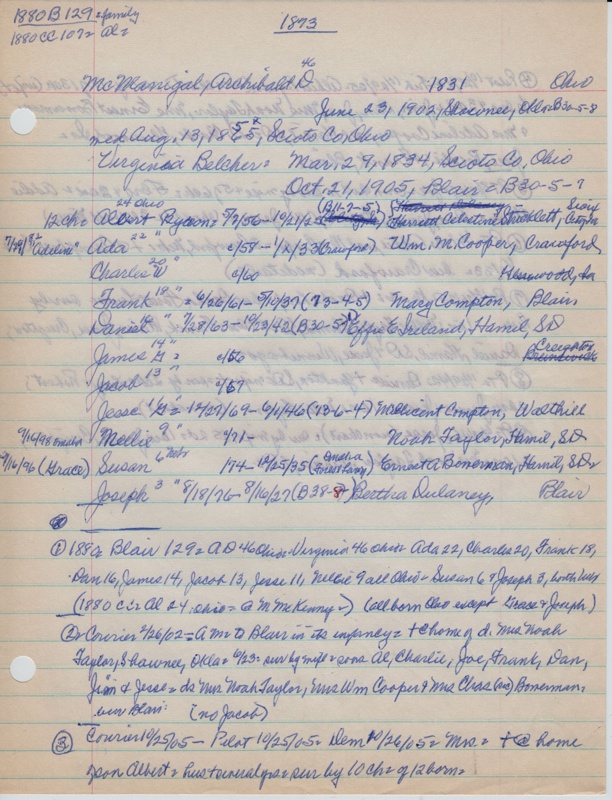 1880 B 129 = family
1880 CC 107 = Al =
1873
McManigal, Archibald D 46 1831 Ohio
June 23, 1902, Shawnee, Okla = B30-5-8
med Aug. 13, 1855, Scioto Co, Ohio
Virginia Belcher = Mar. 29, 1834, Scioto Co, Ohio
Oct. 21, 1905, Blair = B30-5-7
12 ch = Albert Rycon = 5/2/56 - 10/21/25 (B11-7-5) Harriett Celestine Stricklett,
24 Ohio
"Adeline" Ada 22 " c/58 - 1/2/33 (Craig re) Wm. M. Cooper, Crawford
Charles W 20 " c/60
Frank 18 " = 6/26/61 - 5/10/37 (73-4-5) Mary Compton, Blair
Daniel 16 " 7/28/63 - 10/23/42 (B30-5) Effie E. Ireland, Hamil, SD
James G 14 " = c/66
Jacob 13 " c/67
Jesse G 11 " = 12/27/69 - 6/1/46 (73-6-4) Millicent Compton, Walthill
9/16/98 Omaha Nellie 9 " c/71 - Noah Taylor, Hamil, SD
9/16/96 (Grace) Susan 6 Nebr /74 - 10/25/35 Ernest A Bonerman, Hamil, SD
Joseph 3 " 8/18/76 - 8/16/27 (B38-8) Bertha Dulaney, Blair
① 1880 = Blair 129 = AD 46 Ohio = Virginia 46 Ohio = Ada 22, Charles 20, Frank 18,
Dan 16, James 14, Jacob 13, Jesse 11, Nellie 9 all Ohio = Susan 6 & Joseph 3, both Neb
(1880 CC = Al 24 Ohio = @ M McKinny =) (all born Ohio except Grace & Joseph)
② Courier 2/26/02 = Am to Blair in its infancy = + @ home of d. Mrs Noah
Taylor, Shawnee, Okla = 6/23 = sur by wife = sons Al, Charlie, Joe, Frank, Dan,
Jim & Jesse = ds Mrs Noah Taylor, Mrs Wm Cooper & Mrs Chas (no) Bonerman,
bur Blair (no Jacob)
③ Courier 10/25/05 - Pilot 10/25/05 = Dem 10/26/05 = Mrs = + @ home
of son Albert = hus + several yrs = sur by 10 ch = of 12 born =